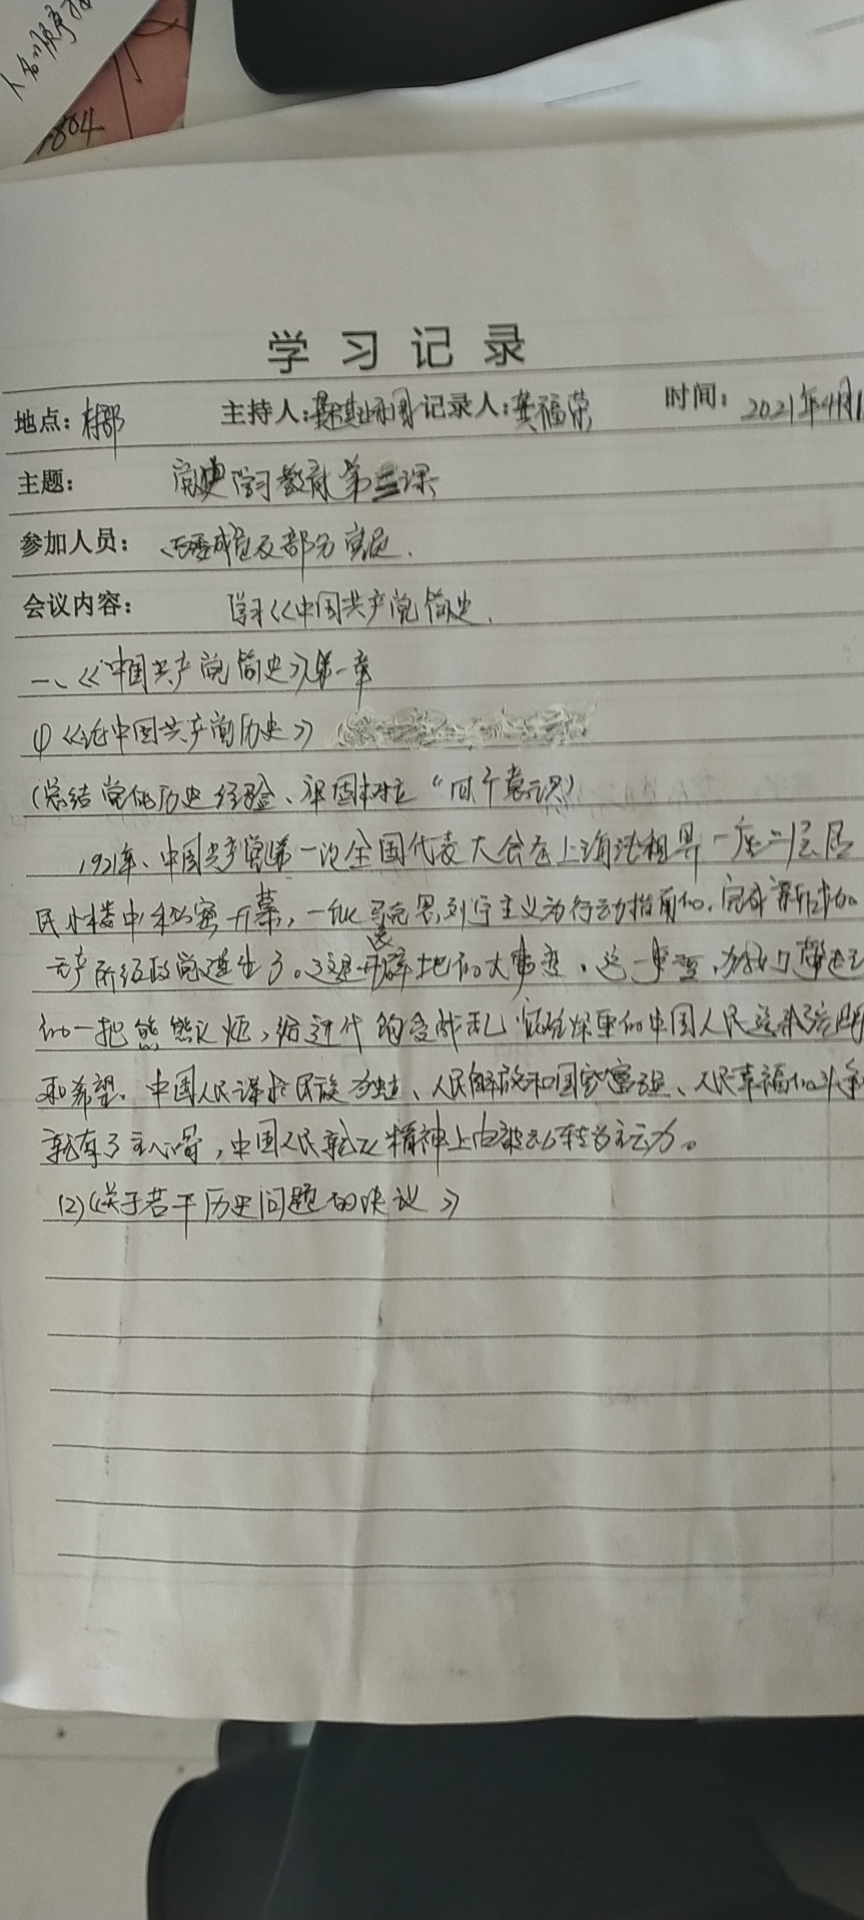 804
学习记录
地点：村部 主持人： 记录人：龚福荣 时间：2021年4月1
主题： 党史学习教育第三课
参加人员： 成员及部分党员.
会议内容： 学习《中国共产党简史.
一、《中国共产党简史》第一章
(1)《论中国共产党历史》
(总结党的历史经验、牢固树立“四个意识)
1921年、中国共产党第一次全国代表大会在上海法租界一座二层居
民小楼中秘密开幕，一 马克思列宁主义为行动指南的.完成新 的
无产阶级政党诞生了。这是开天辟地的大事变.这一事 ，
的一把熊熊火炬，给近代饱受战乱 深重的中国人民
和希望.中国人民谋求民族独立、人民解放和国家富强、人民幸福的斗争
就有了主心骨，中国人民就从精神上由被动转为主动。
(2)《关于若干历史问题的决议》